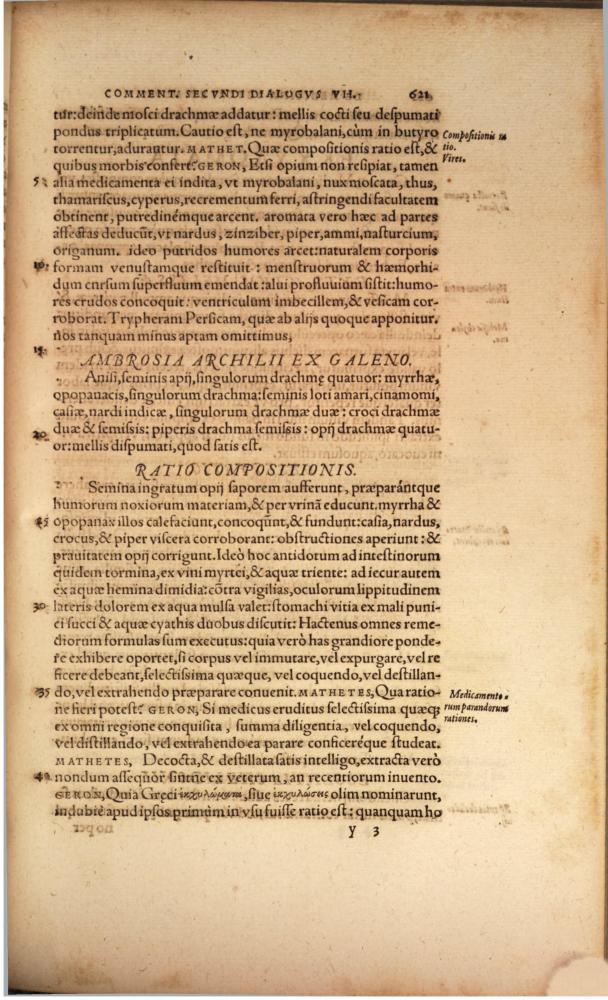 COMMENT. SECVNDI DIALOGVS VII. 621
tur: deinde mosci drachmæ addatur: mellis cocti seu despumati
pondus triplicatum. Cautio est, ne myrobalani, cùm in butyro
torrentur, adurantur. MATHET. Quæ compositionis ratio est, &
Compositionis ra
tio.
Vires.
quibus morbis confert? GERON, Etsi opium non resipiat, tamen
5 alia medicamenta ei indita, vt myrobalani, nux moscata, thus,
thamariscus, cyperus, recrementum ferri, astringendi facultatem
obtinent, putredinémque arcent. aromata vero hæc ad partes
affectas deducũt, vt nardus, zinziber, piper, ammi, nasturcium,
origanum. ideo putridos humores arcet: naturalem corporis
10 formam venustamque restituit: menstruorum & hæmorhi-
dum cursum superfluum emendat: alui profluuium sistit: humo-
res crudos concoquit: ventriculum imbecillem, & vesicam cor-
roborat. Trypheram Persicam, quæ ab alijs quoque apponitur.
nos tanquam minus aptam omittimus,
15
AMBROSIA ARCHILII EX GALENO.
Anisi, seminis apij, singulorum drachmę quatuor: myrrhæ,
opopanacis, singulorum drachma: seminis loti amari, cinamomi,
casiæ, nardi indicæ, singulorum drachmæ duæ: croci drachmæ
duæ & semissis: piperis drachma semissis: opij drachmæ quatu-
20 or: mellis dispumati, quod satis est.
RATIO COMPOSITIONIS.
Semina ingratum opij saporem aufferunt, præparántque
humorum noxiorum materiam, & per vrinã educunt. myrrha &
25 opopanax illos calefaciunt, concoqũnt, & fundunt: casia, nardus,
crocus, & piper viscera corroborant: obstructiones aperiunt: &
prauitatem opij corrigunt. Ideò hoc antidotum ad intestinorum
quidem tormina, ex vini myrtei, & aquæ triente: ad iecur autem
ex aquæ hemina dimidia: cõtra vigilias, oculorum lippitudinem
30 lateris dolorem ex aqua mulsa valet: stomachi vitia ex mali puni-
ci succi & aquæ cyathis duobus discutit: Hactenus omnes reme-
diorum formulas sum executus: quia verò has grandiore ponde-
re exhibere oportet, si corpus vel immutare, vel expurgare, vel re
ficere debeant, selectissima quæque, vel coquendo, vel destillan-
35 do, vel extrahendo præparare conuenit. MATHETES, Qua ratio-
ne fieri potest? GERON, Si medicus eruditus selectissima quæq;
Medicamento-
rum parandorum
rationes.
ex omni regione conquisita, summa diligentia, vel coquendo,
vel distillando, vel extrahendo ea parare conficeréque studeat.
MATHETES, Decocta, & destillata satis intelligo, extracta verò
40 nondum assequor sintne ex veterum, an recentiorum inuento.
GERON, Quia Gręci ἐκχυλώματα, siue ἐκχυλώσεις olim nominarunt,
indubiè apud ipsos primùm in vsu fuisse ratio est: quanquam ho
Y 3